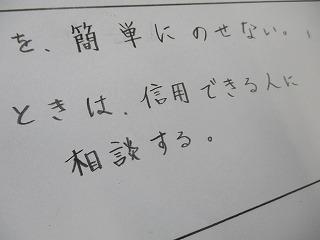 を、簡単にのせない。
ときは、信用できる人に
相談する。